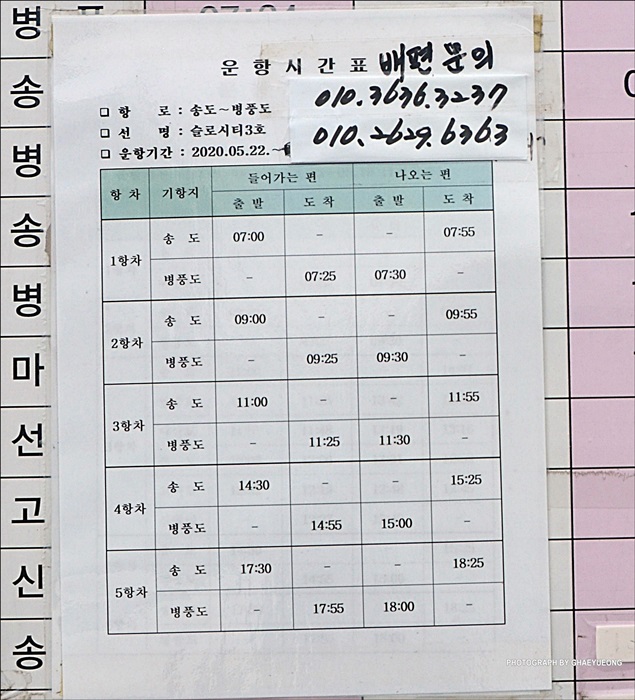 병 표
송
병
송
병
마
선
고
신
송
운 항 시 간 표 배편 문의
010.3636.3237
010.2629.6363
□ 항 로 : 송도~병풍도
□ 선 명 : 슬로시티3호
□ 운항기간 : 2020.05.22.~
항 차 기항지 들어가는 편 나오는 편
출 발 도 착 출 발 도 착
1항차 송 도 07:00 - - 07:55
병풍도 - 07:25 07:30 -
2항차 송 도 09:00 - - 09:55
병풍도 - 09:25 09:30 -
3항차 송 도 11:00 - - 11:55
병풍도 - 11:25 11:30 -
4항차 송 도 14:30 - - 15:25
병풍도 - 14:55 15:00 -
5항차 송 도 17:30 - - 18:25
병풍도 - 17:55 18:00 -
PHOTOGRAPH BY GHAEYUEONG